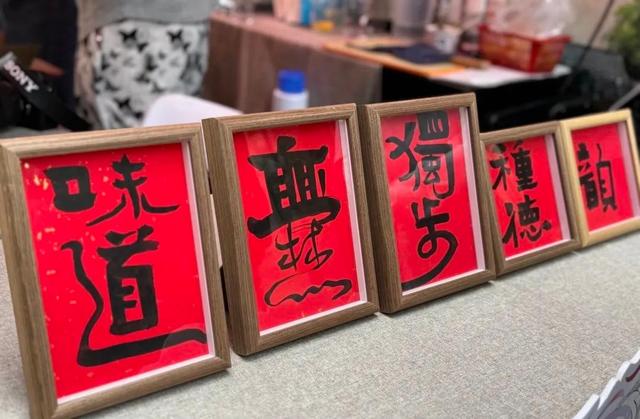 SONY
味道
無
獨步
種德
韻